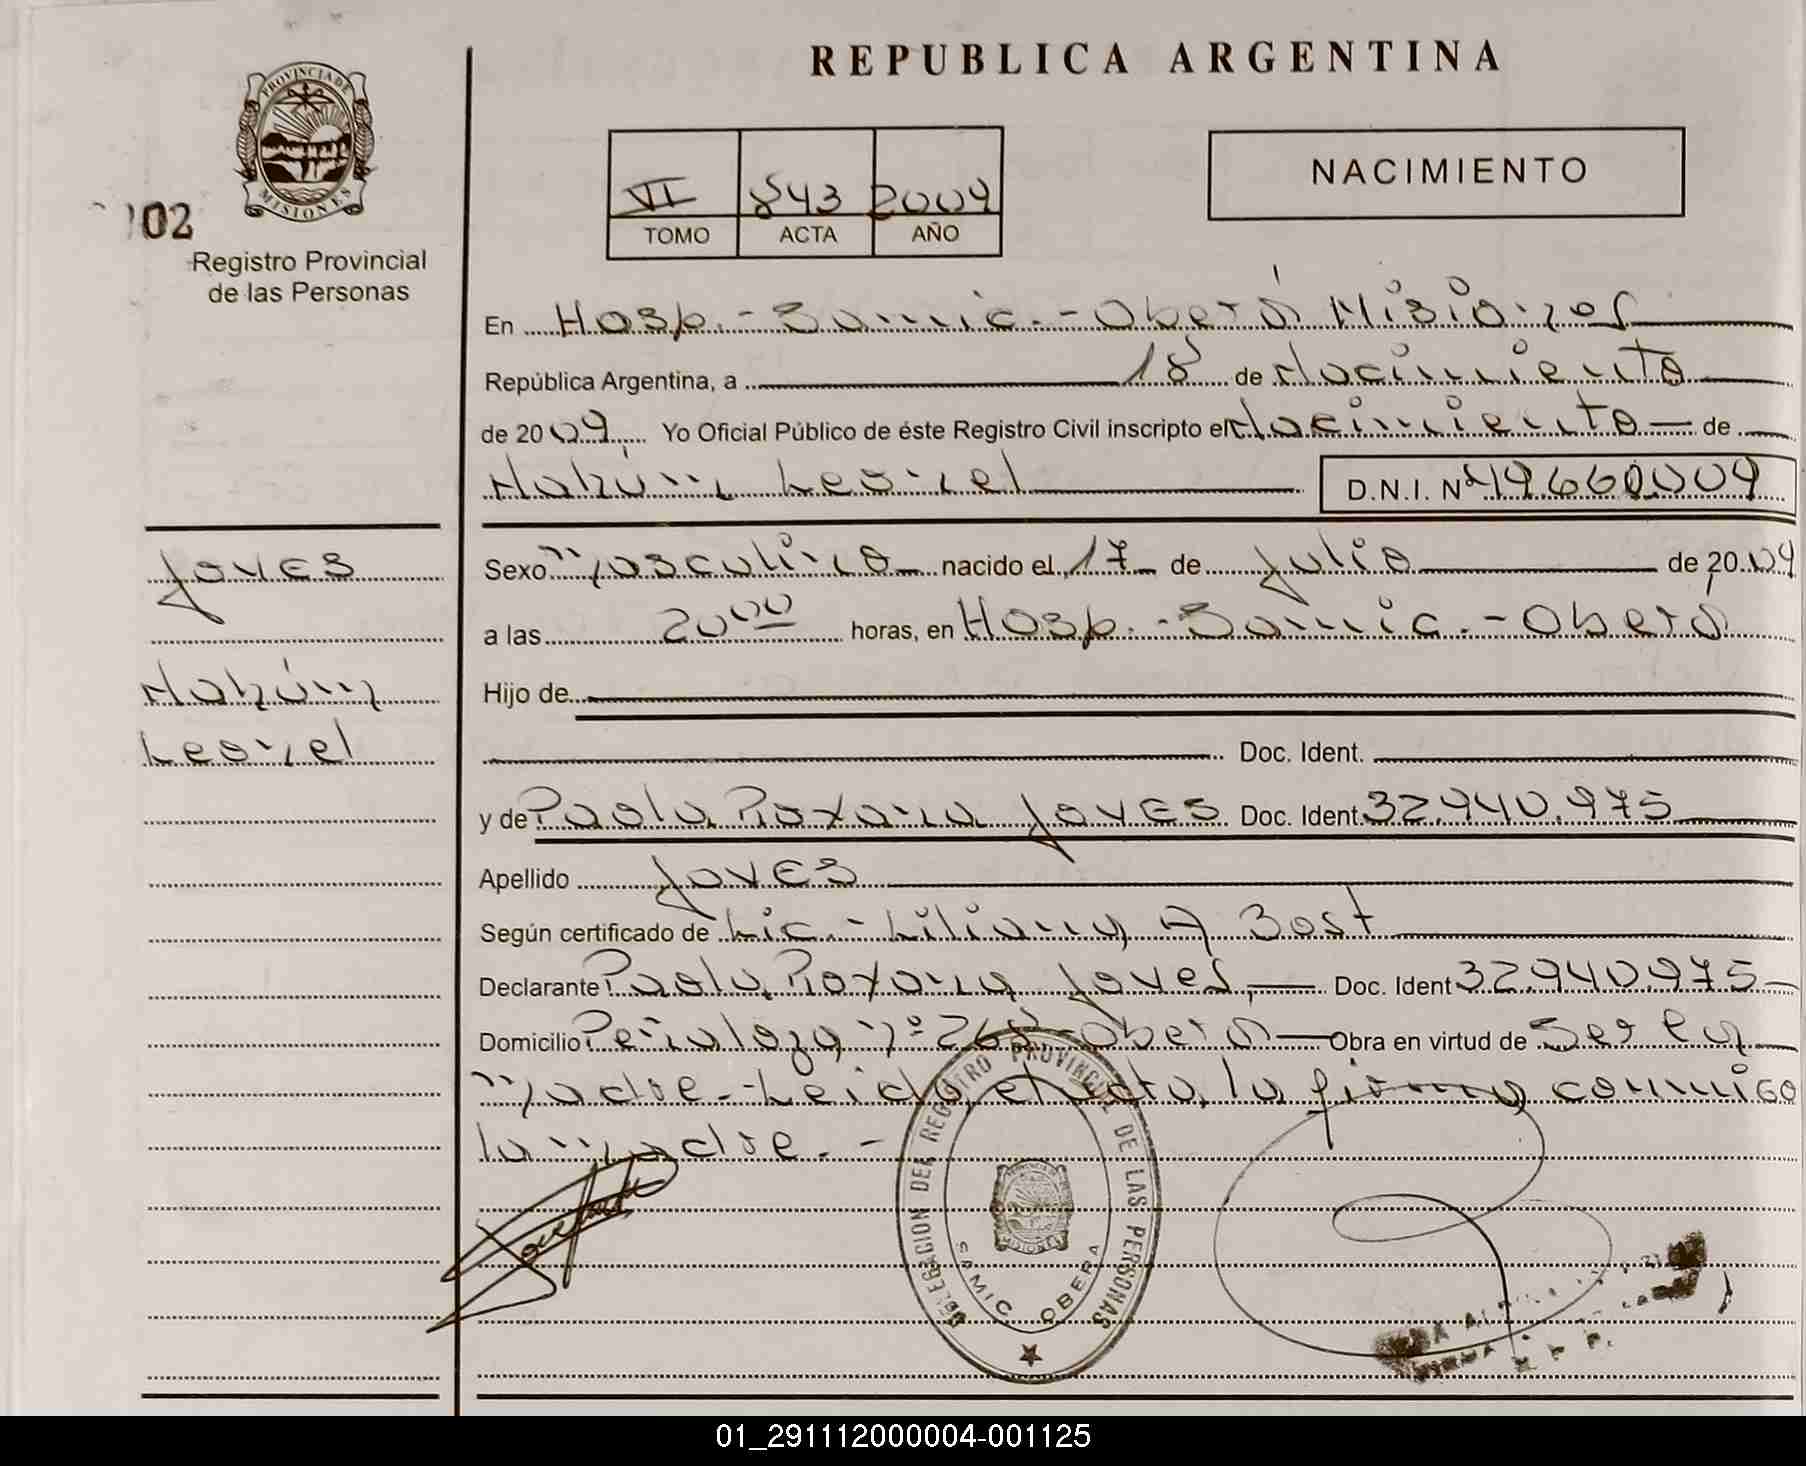 REPUBLICA ARGENTINA
PROVINCIA DE
MISIONES
102
Registro Provincial
de las Personas
VI 843 2009
TOMO ACTA AÑO
NACIMIENTO
En Hosp.- Samic.- Oberá Misiones
República Argentina, a 18 de Nacimiento
de 2009 Yo Oficial Público de éste Registro Civil inscripto el Nacimiento de
Nahúm Leonel D.N.I. Nº 49.660.009
Joves
Nahúm
Leonel
Sexo Masculino nacido el 17 de Julio de 2009
a las 20 00 horas, en Hosp.- Samic.- Oberá
Hijo de
Doc. Ident.
y de Paola Roxana Joves Doc. Ident. 32.940.975
Apellido Joves
Según certificado de Lic.- Liliana A Bost
Declarante Paola Roxana Joves, Doc. Ident 32.940.975
Domicilio Peñaloza nº 268 - Oberá Obra en virtud de Ser la
madre.- Leida el acta, la firma conmigo
la madre.-
DELEGACION DEL REGISTRO PROVINCIAL DE LAS PERSONAS
PROVINCIA DE
MISIONES
SAMIC OBERA
01_291112000004-001125